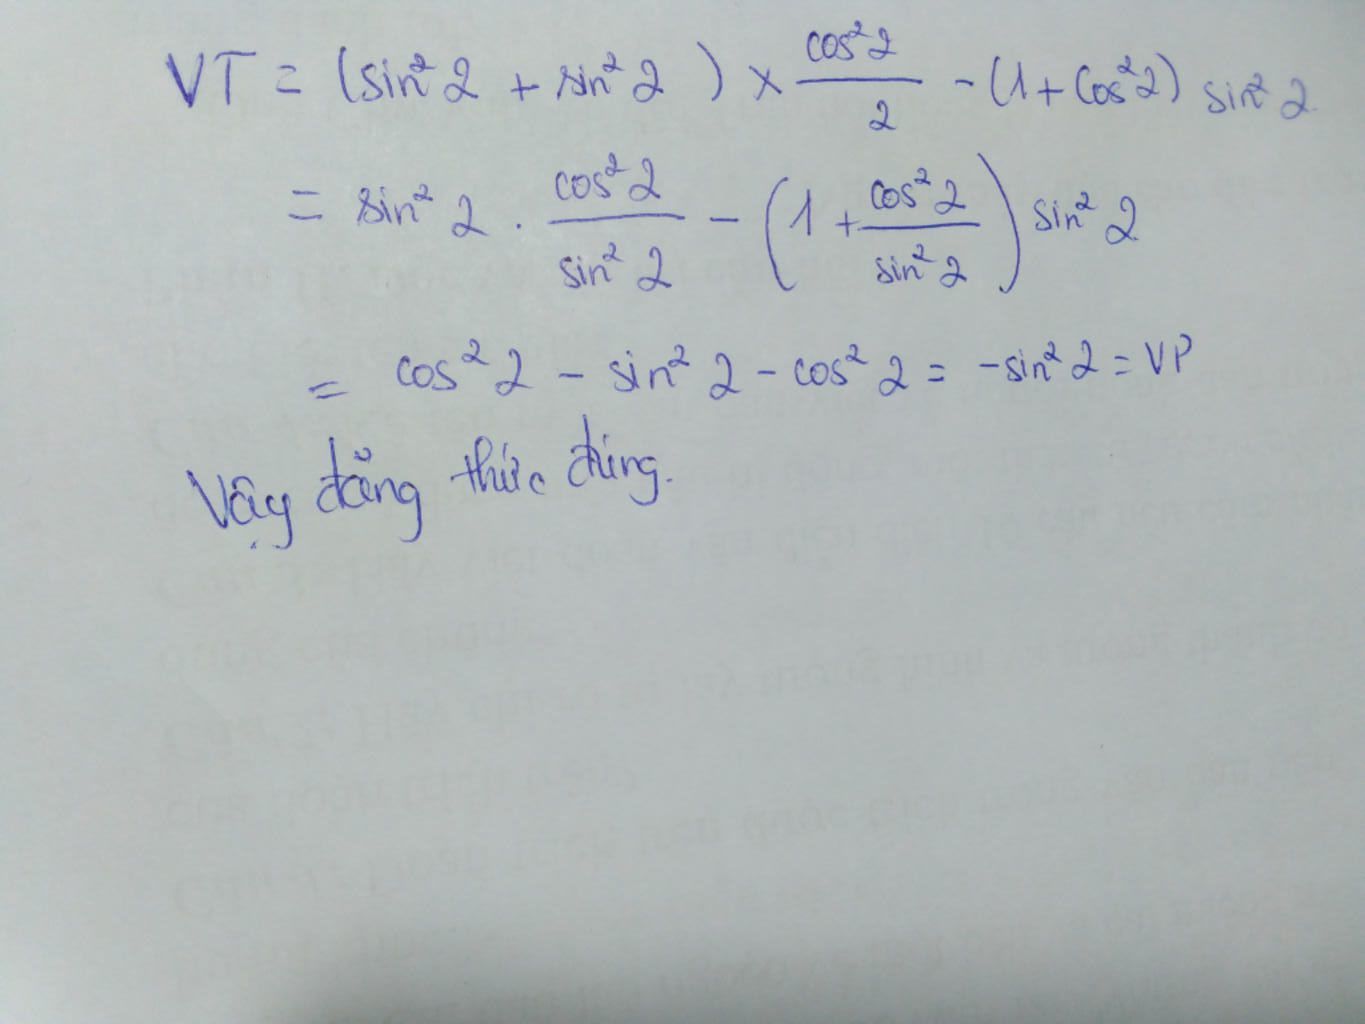 VT = (sin² 2 + sin² 2) × cos² 2 / 2 - (1 + cos² 2) sin² 2
= sin² 2 . cos² 2 / sin² 2 - (1 + cos² 2 / sin² 2) sin² 2
= cos² 2 - sin² 2 - cos² 2 = -sin² 2 = VP
Vậy đẳng thức đúng.